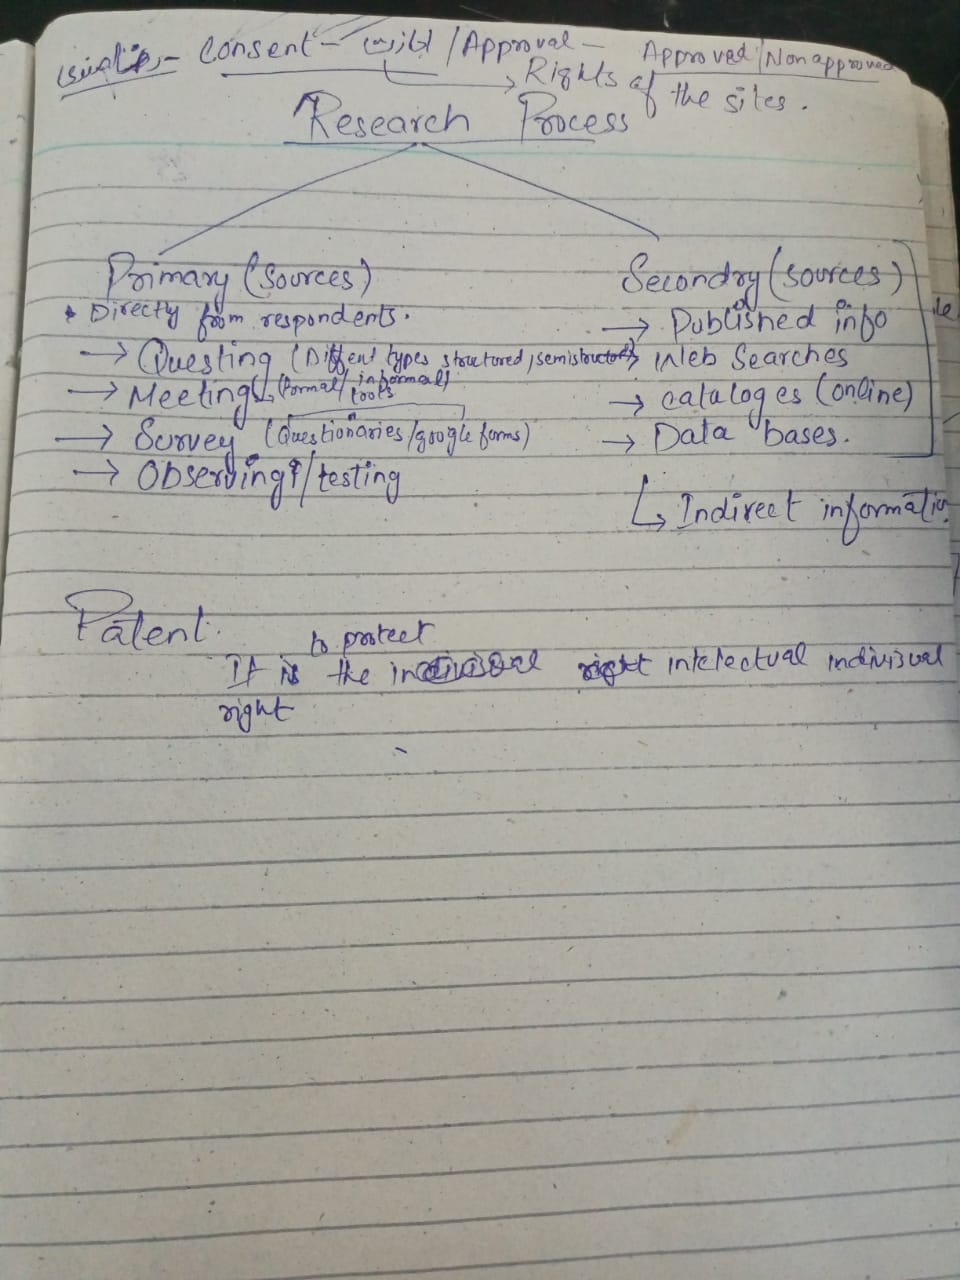 Consent - اجازت / Approval - Approved / Nonapproved
Rights of the sites.
Research Process
Primary (Sources)
Directly from respondents.
→ Questing (Diffent types structured, semistructor)
→ Meeting (formal / informal)
tools
→ Survey (Questionaries / google forms)
→ Observing / testing
Secondry (sources)
→ Published info
→ Web Searches
→ cataloges (online)
→ Data bases.
Indirect informatio
Patent.
to protect
It is the indivisual right intelectual indivisual
right